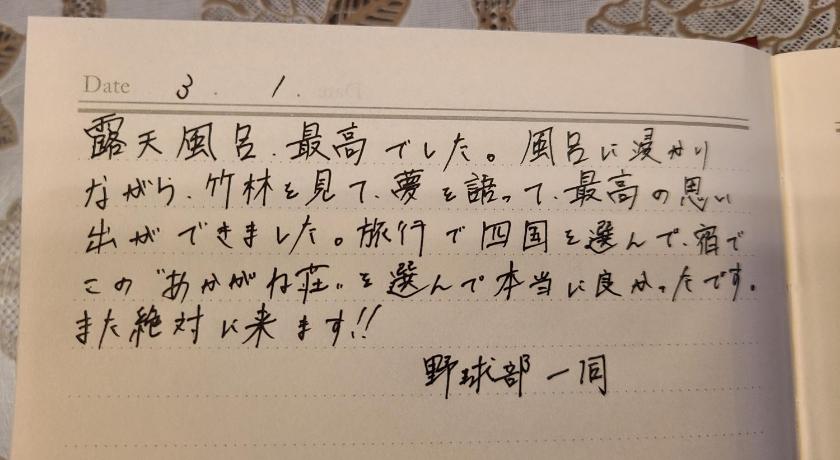 Date 3. 1.
露天風呂、最高でした。風呂に浸かり
ながら、竹林を見て、夢を語って、最高の思い
出ができました。旅行で四国を選んで、宿で
この"あかがね荘"を選んで本当に良かったです。
また絶対に来ます!!
野球部一同